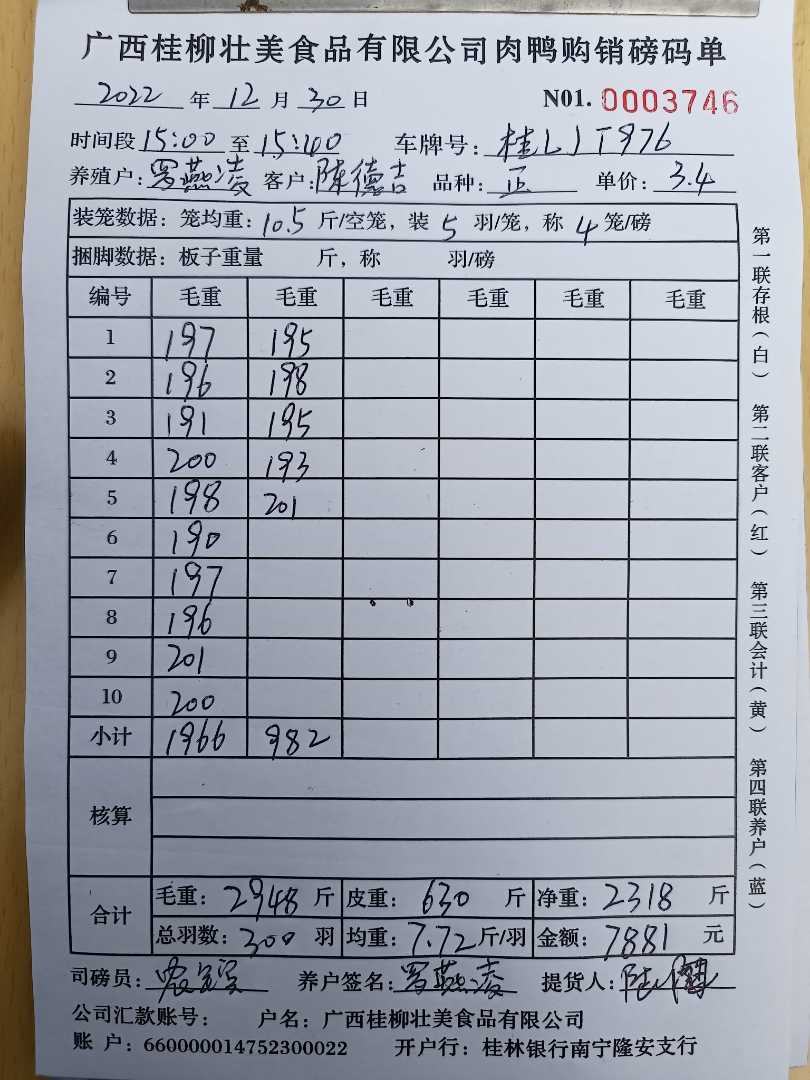 广西桂柳壮美食品有限公司肉鸭购销磅码单
2022 年 12 月 30 日 N01. 0003746
时间段 15:00 至 15:40 车牌号: 桂LJT976
养殖户: 罗燕凌 客户: 陈德吉 品种: 正 单价: 3.4
装笼数据: 笼均重: 10.5 斤/空笼, 装 5 羽/笼, 称 4 笼/磅
捆脚数据: 板子重量 斤, 称 羽/磅
编号 毛重 毛重 毛重 毛重 毛重 毛重
1 197 195
2 196 198
3 191 195
4 200 193
5 198 201
6 190
7 197
8 196
9 201
10 200
小计 1966 982
核算
合计 毛重: 2948 斤 皮重: 630 斤 净重: 2318 斤
总羽数: 300 羽 均重: 7.72 斤/羽 金额: 7881 元
司磅员: 养户签名: 罗燕凌 提货人:
公司汇款账号: 户名: 广西桂柳壮美食品有限公司
账 户: 660000014752300022 开户行: 桂林银行南宁隆安支行
第一联存根(白) 第二联客户(红) 第三联会计(黄) 第四联养户(蓝)